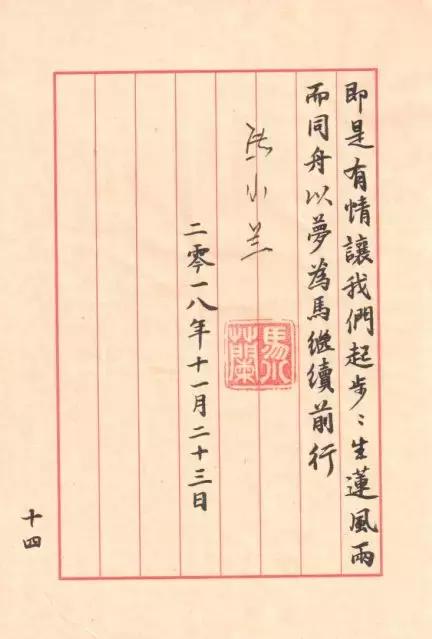 即是有情讓我們起步〻生蓮風雨
而同舟以夢為馬繼續前行
马小兰
馬小蘭
二零一八年十一月二十三日
十四